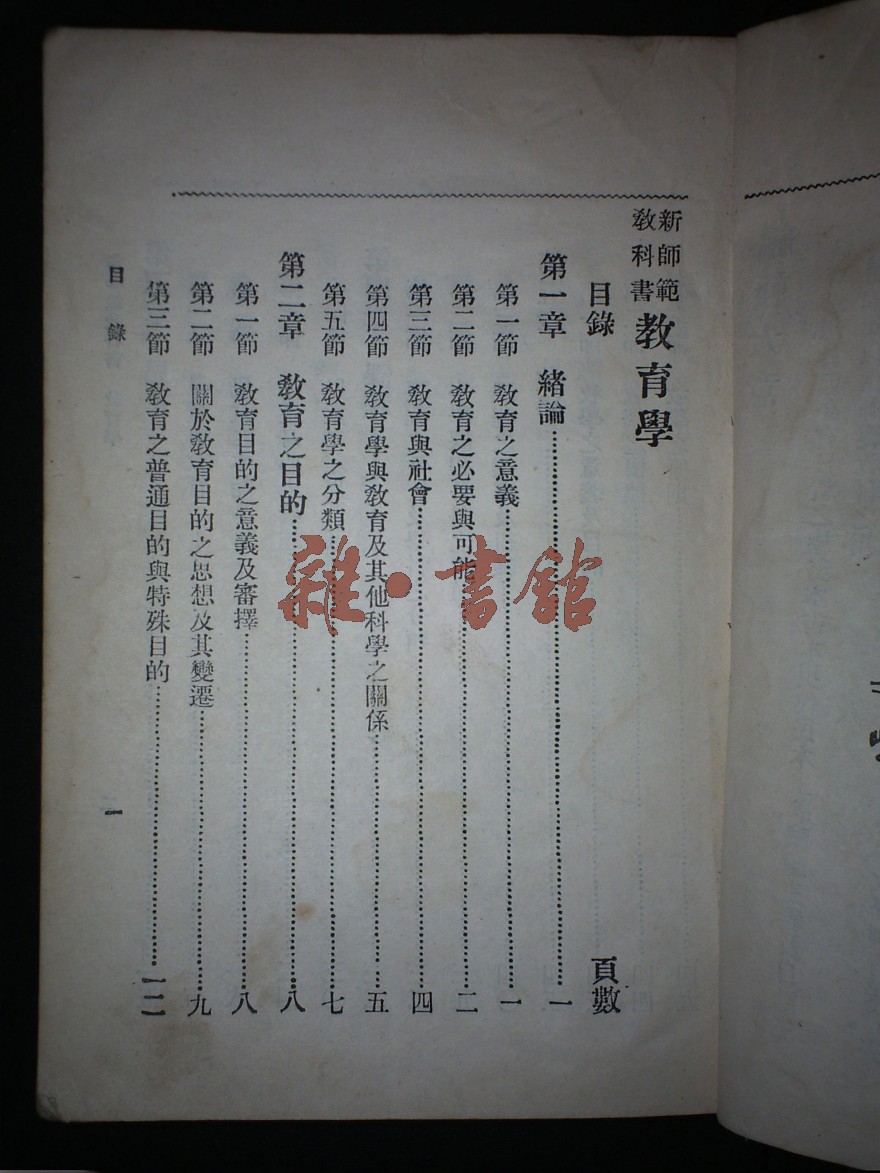 新師範教科書 教育學
目錄 頁數
第一章 緒論 一
第一節 教育之意義 一
第二節 教育之必要與可能 二
第三節 教育與社會 四
第四節 教育學與教育及其他科學之關係 五
第五節 教育學之分類 七
第二章 教育之目的 八
第一節 教育目的之意義及審擇 八
第二節 關於教育目的之思想及其變遷 九
第三節 教育之普通目的與特殊目的 一二
目錄 一
雜·書館